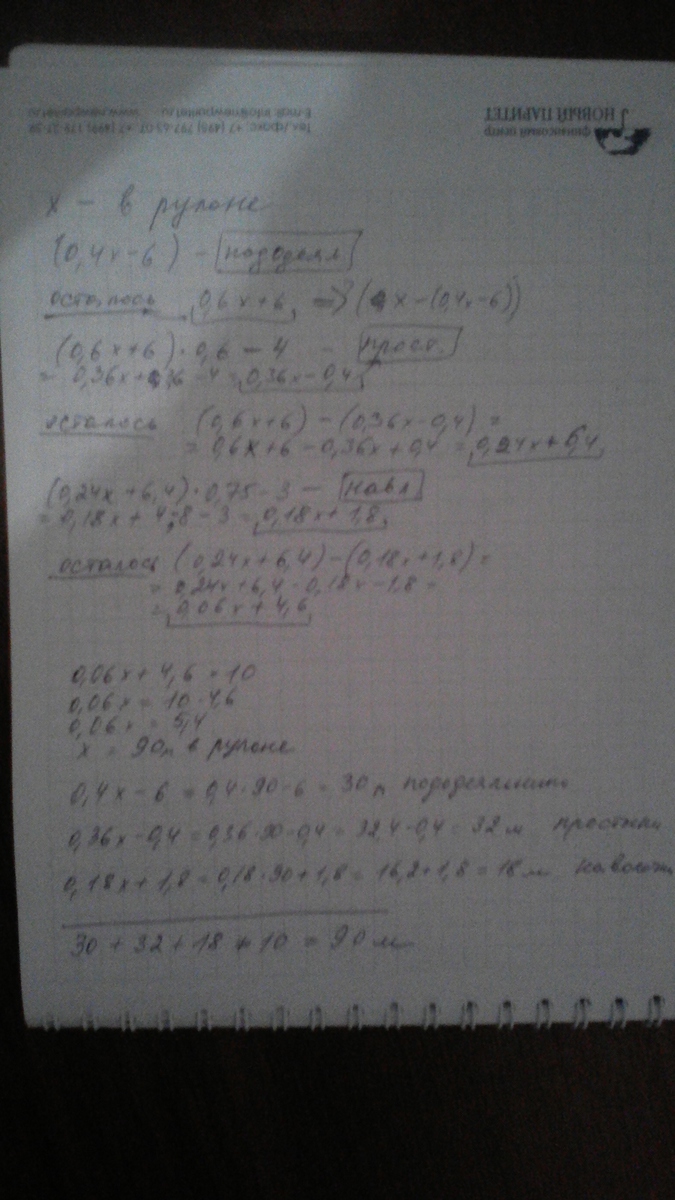 финансовый центр
НОВЫЙ ПАРИТЕТ
x - в рулоне
(0,4x-6) - пододеял
осталось 0,6x+6 => (x-(0,4x-6))
(0,6x+6)·0,6-4 - прост.
= 0,36x+3,6-4 = 0,36x-0,4
осталось (0,6x+6)-(0,36x-0,4) =
= 0,6x+6-0,36x+0,4 = 0,24x+6,4
(0,24x+6,4)·0,75-3 - навл
= 0,18x+4,8-3 = 0,18x+1,8
осталось (0,24x+6,4)-(0,18x+1,8) =
= 0,24x+6,4-0,18x-1,8 =
= 0,06x+4,6
0,06x+4,6=10
0,06x=10-4,6
0,06x=5,4
x = 90м в рулоне
0,4x-6=0,4·90-6=30м пододеяльники
0,36x-0,4=0,36·90-0,4=32,4-0,4=32м простыни
0,18x+1,8=0,18·90+1,8=16,2+1,8=18м наволочки
30+32+18+10=90м